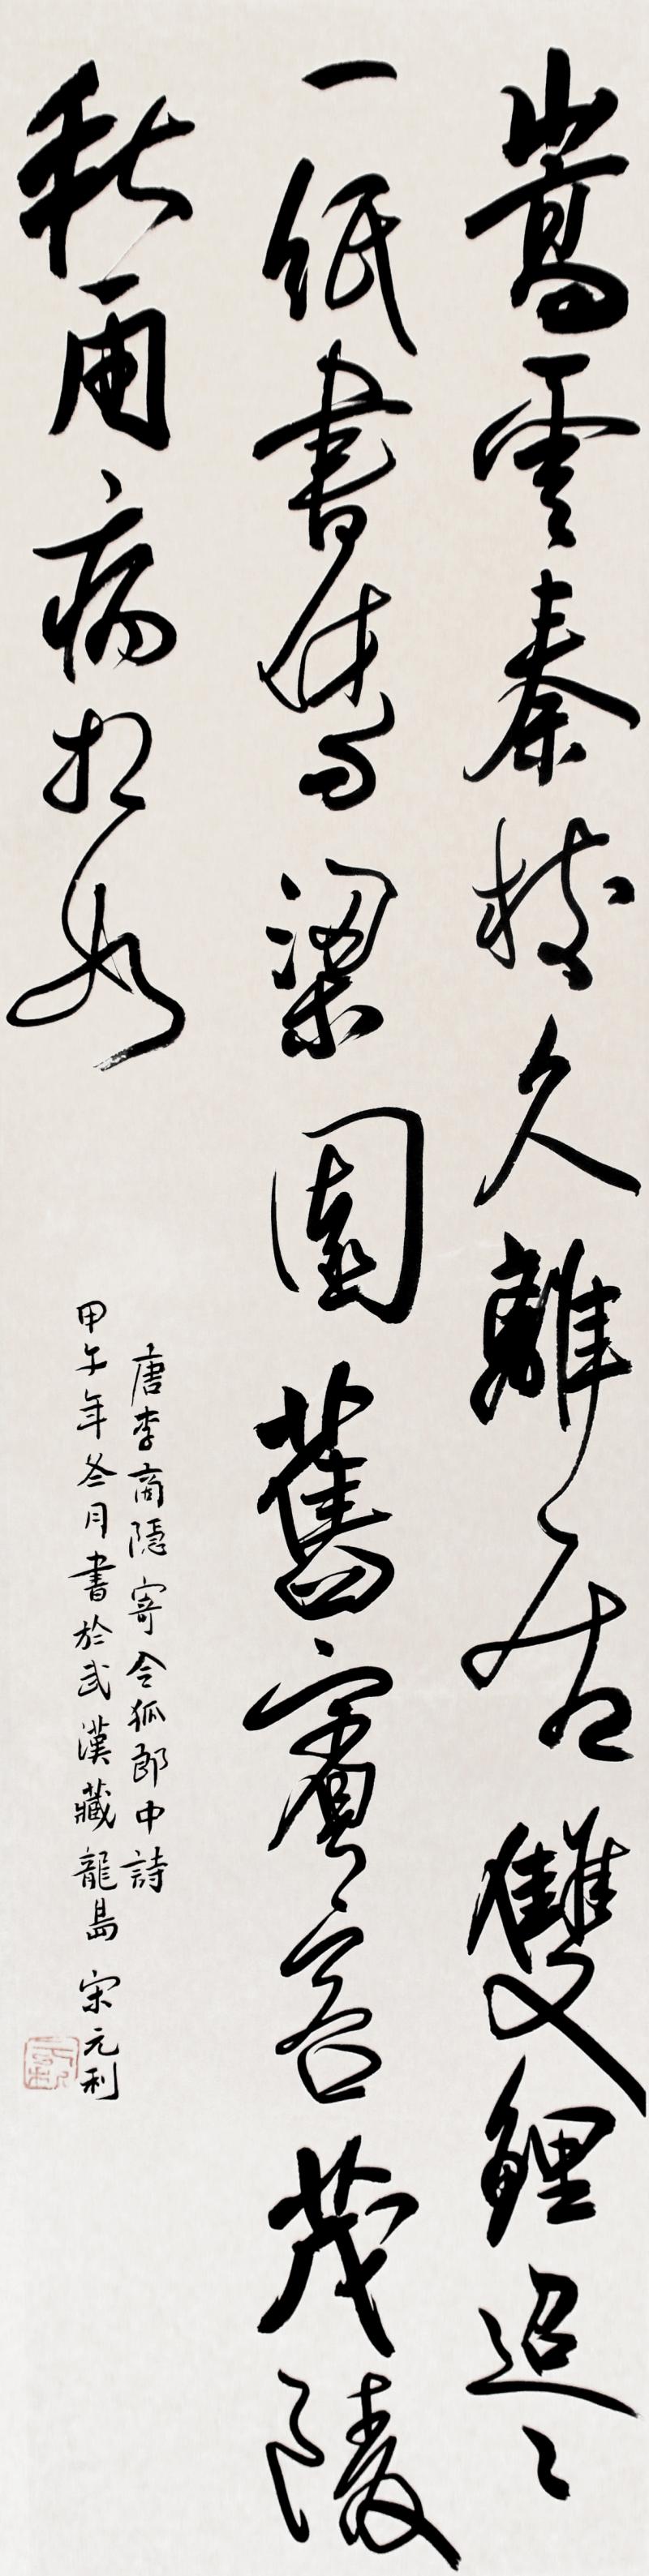 嵩雲秦樹久離居雙鯉迢々
一紙書休問梁園舊賓客茂陵
秋雨病相如
唐李商隱寄令狐郎中詩
甲午年冬月書於武漢藏龍島 宋元利